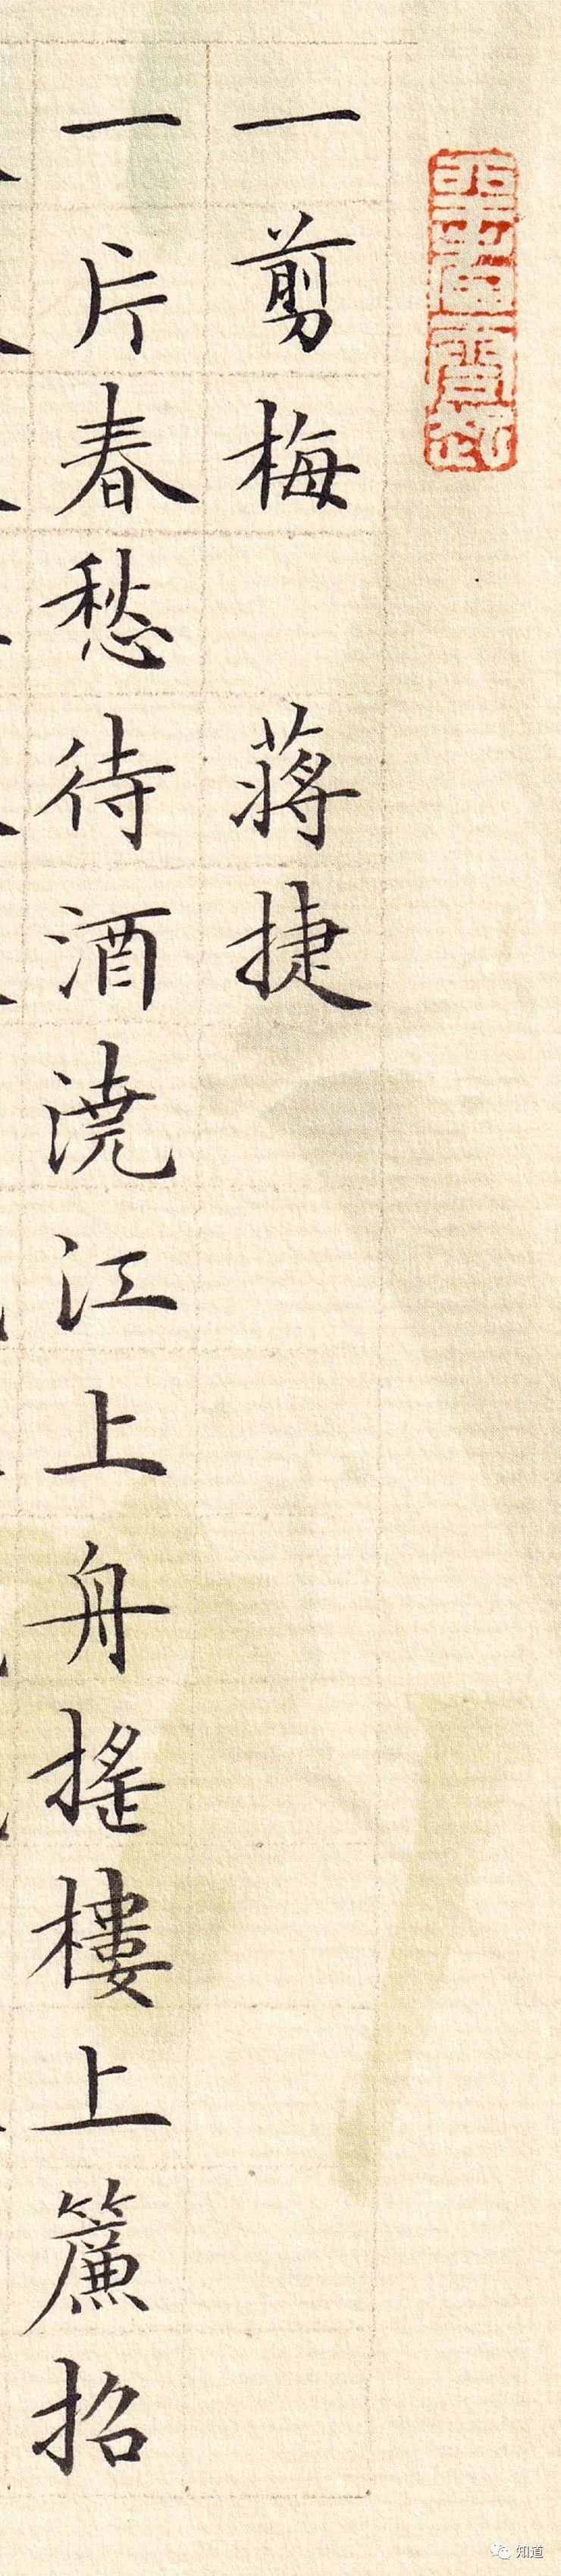 一剪梅 蔣捷
一片春愁待酒澆江上舟搖樓上簾招
知道